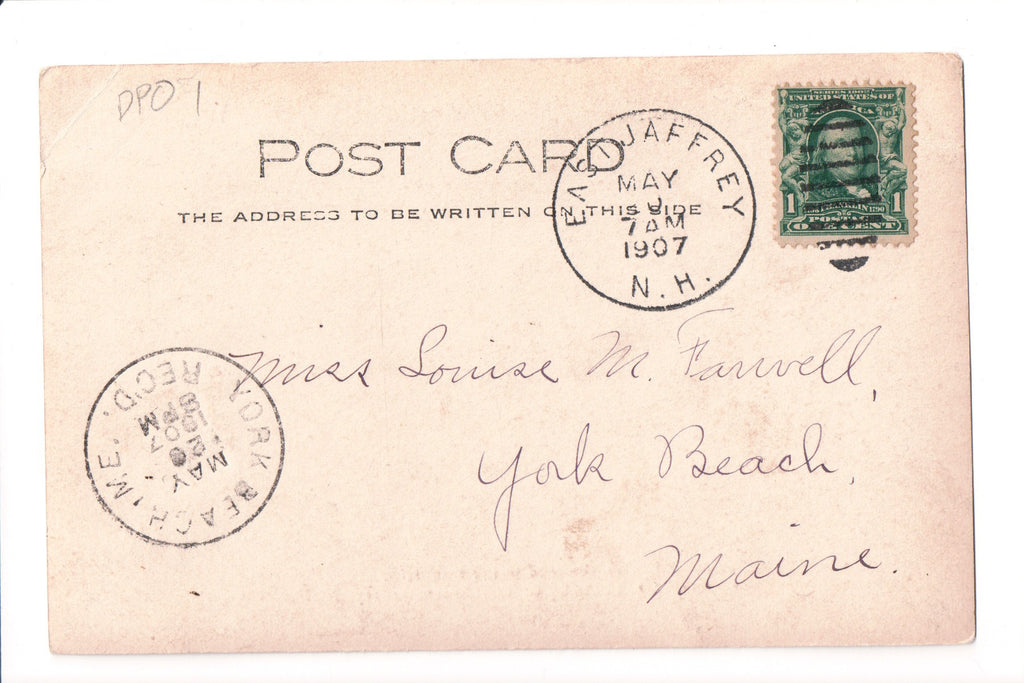 DPO-1.
POST CARD
THE ADDRESS TO BE WRITTEN ON THIS SIDE
EAST JAFFREY
MAY
7 AM
1907
N.H.
SERIES 1902
UNITED STATES OF
AMERICA
1 FRANKLIN 1
POSTAGE
ONE CENT
Miss Louise M. Farwell,
York Beach,
Maine.
YORK BEACH, ME.
REC'D.
MAY
1907
PM